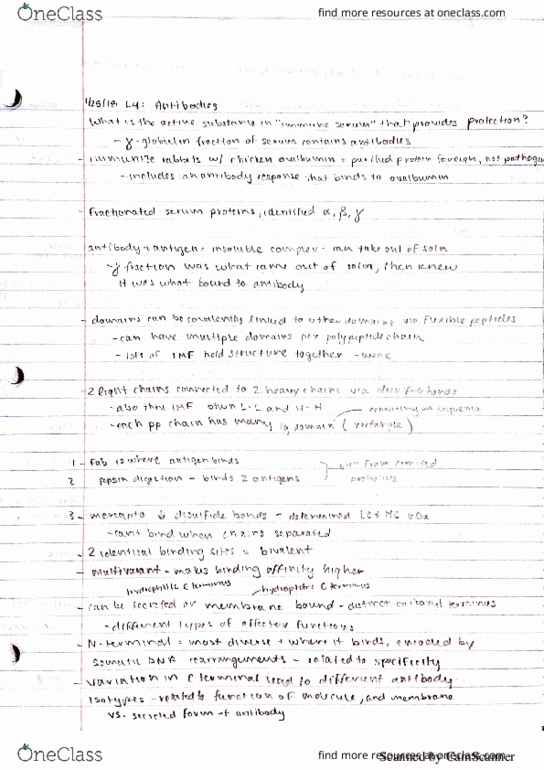 OneClass
find more resources at oneclass.com
1/25/18 L4: Antibodies
What is the active substance in "immune serum" that provides protection?
- γ-globulin fraction of serum contains antibodies
- immunize rabbits w/ chicken ovalbumin = purified protein foreign, not pathogen
- includes an antibody response that binds to ovalbumin
- Fractionated serum proteins, identified α, β, γ
antibody + antigen = insoluble complex - can take out of soln
- γ fraction was what came out of soln, then knew
it was what bound to antibody
- domains can be covalently linked to other domains via flexible peptides
- can have multiple domains per polypeptide chain
- lots of IMF hold structure together - weak
- 2 light chains connected to 2 heavy chains via disulfide bonds
- also thru IMF btwn L-L and H-H
- each pp chain has many ig domain (rectangle)
1 - Fab is where antigen binds
2 pepsin digestion - binds 2 antigens
3 - mercapto ↓ disulfide bonds - determined LC + HC kDa
- can't bind when chains separated
- 2 identical binding sites = bivalent
- multivalent - makes binding affinity higher
hydrophilic C terminus hydrophobic C terminus
- can be secreted or membrane bound - distinct carboxyl terminus
- different types of effector functions
- N-terminal = most diverse + where it binds, encoded by
somatic DNA rearrangements - related to specificity
- variation in C terminal lead to different antibody
isotypes - related to function of molecule, and membrane
vs. secreted form of antibody
OneClass
find more resources at oneclass.com
Scanned by CamScanner